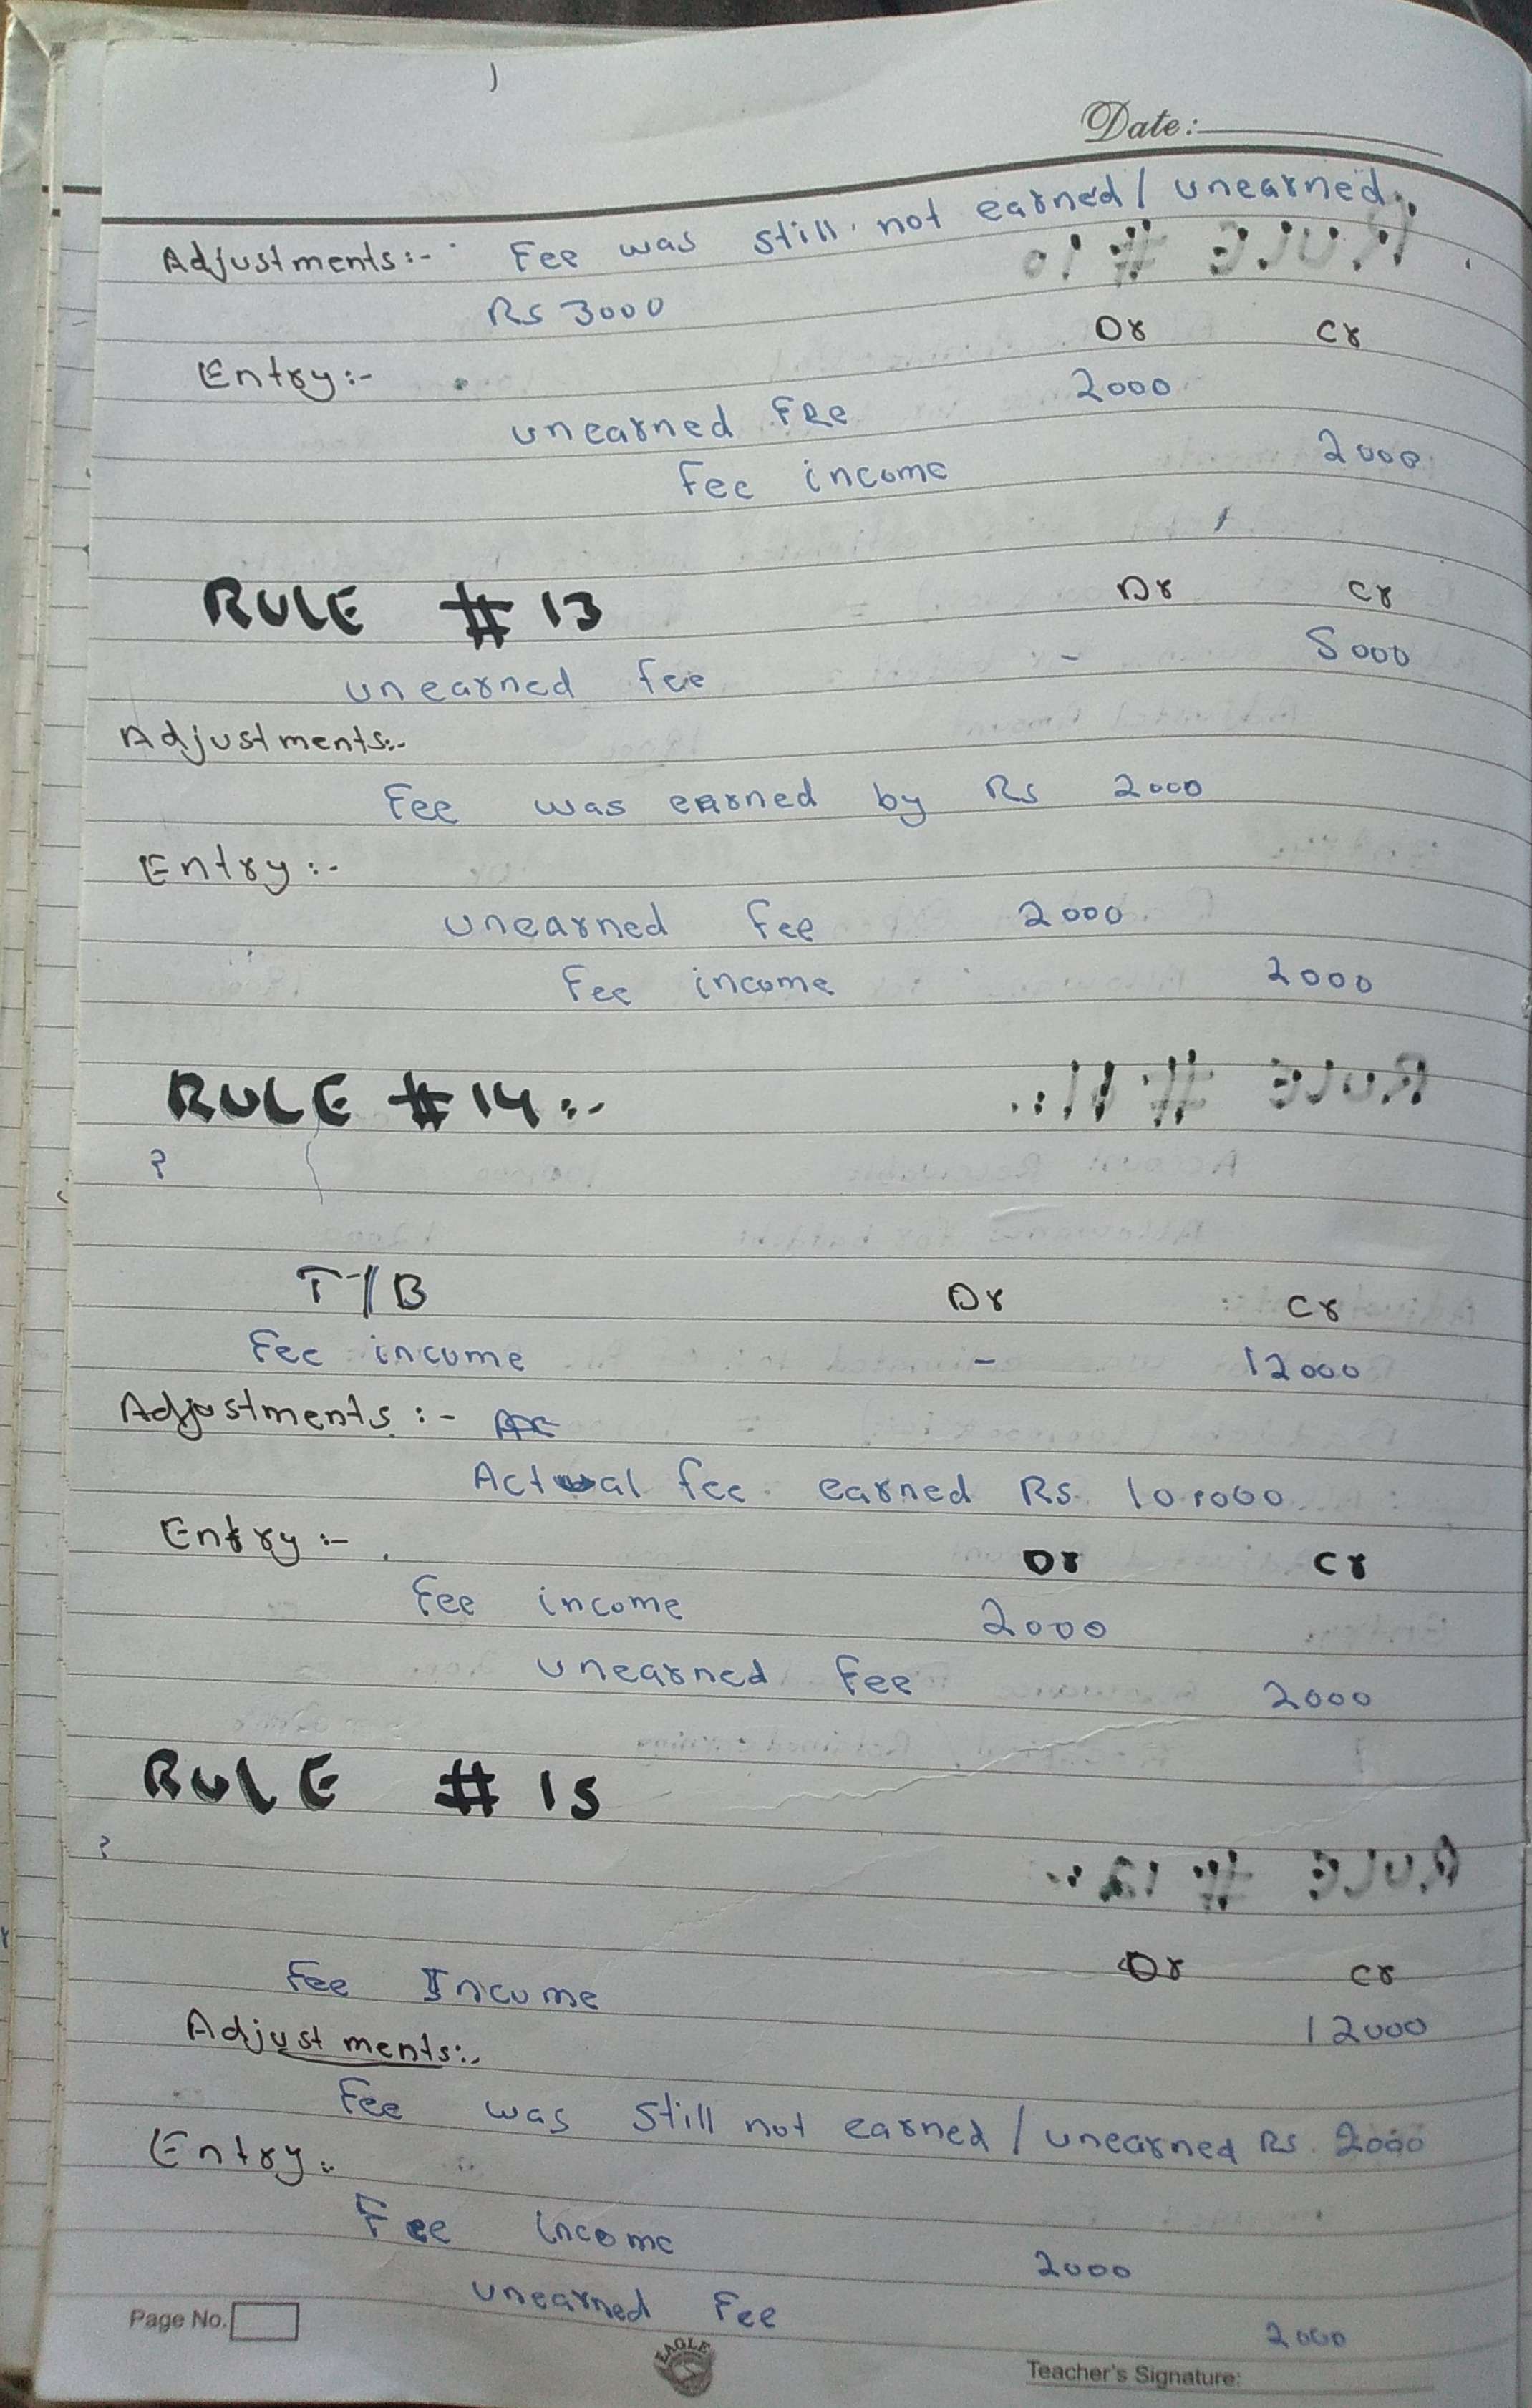 Date:
Adjustments:- Fee was still not earned / unearned
Rs 3000
Dr Cr
Entry:-
unearned Fee 2000
Fee income 2000
RULE # 13 Dr Cr
unearned fee - 5000
Adjustments:-
Fee was earned by Rs 2000
Entry:-
unearned Fee 2000
Fee income 2000
RULE # 14:-
?
T/B Dr Cr
Fee income - 12000
Adjustments:-
Actual fee earned Rs. 10,000
Entry:- Dr Cr
Fee income 2000
unearned Fee 2000
RULE # 15
?
Dr Cr
Fee Income 12000
Adjustments:-
Fee was still not earned / unearned Rs. 2000
Entry:
Fee income 2000
unearned Fee 2000
Page No.
EAGLE
Teacher's Signature: